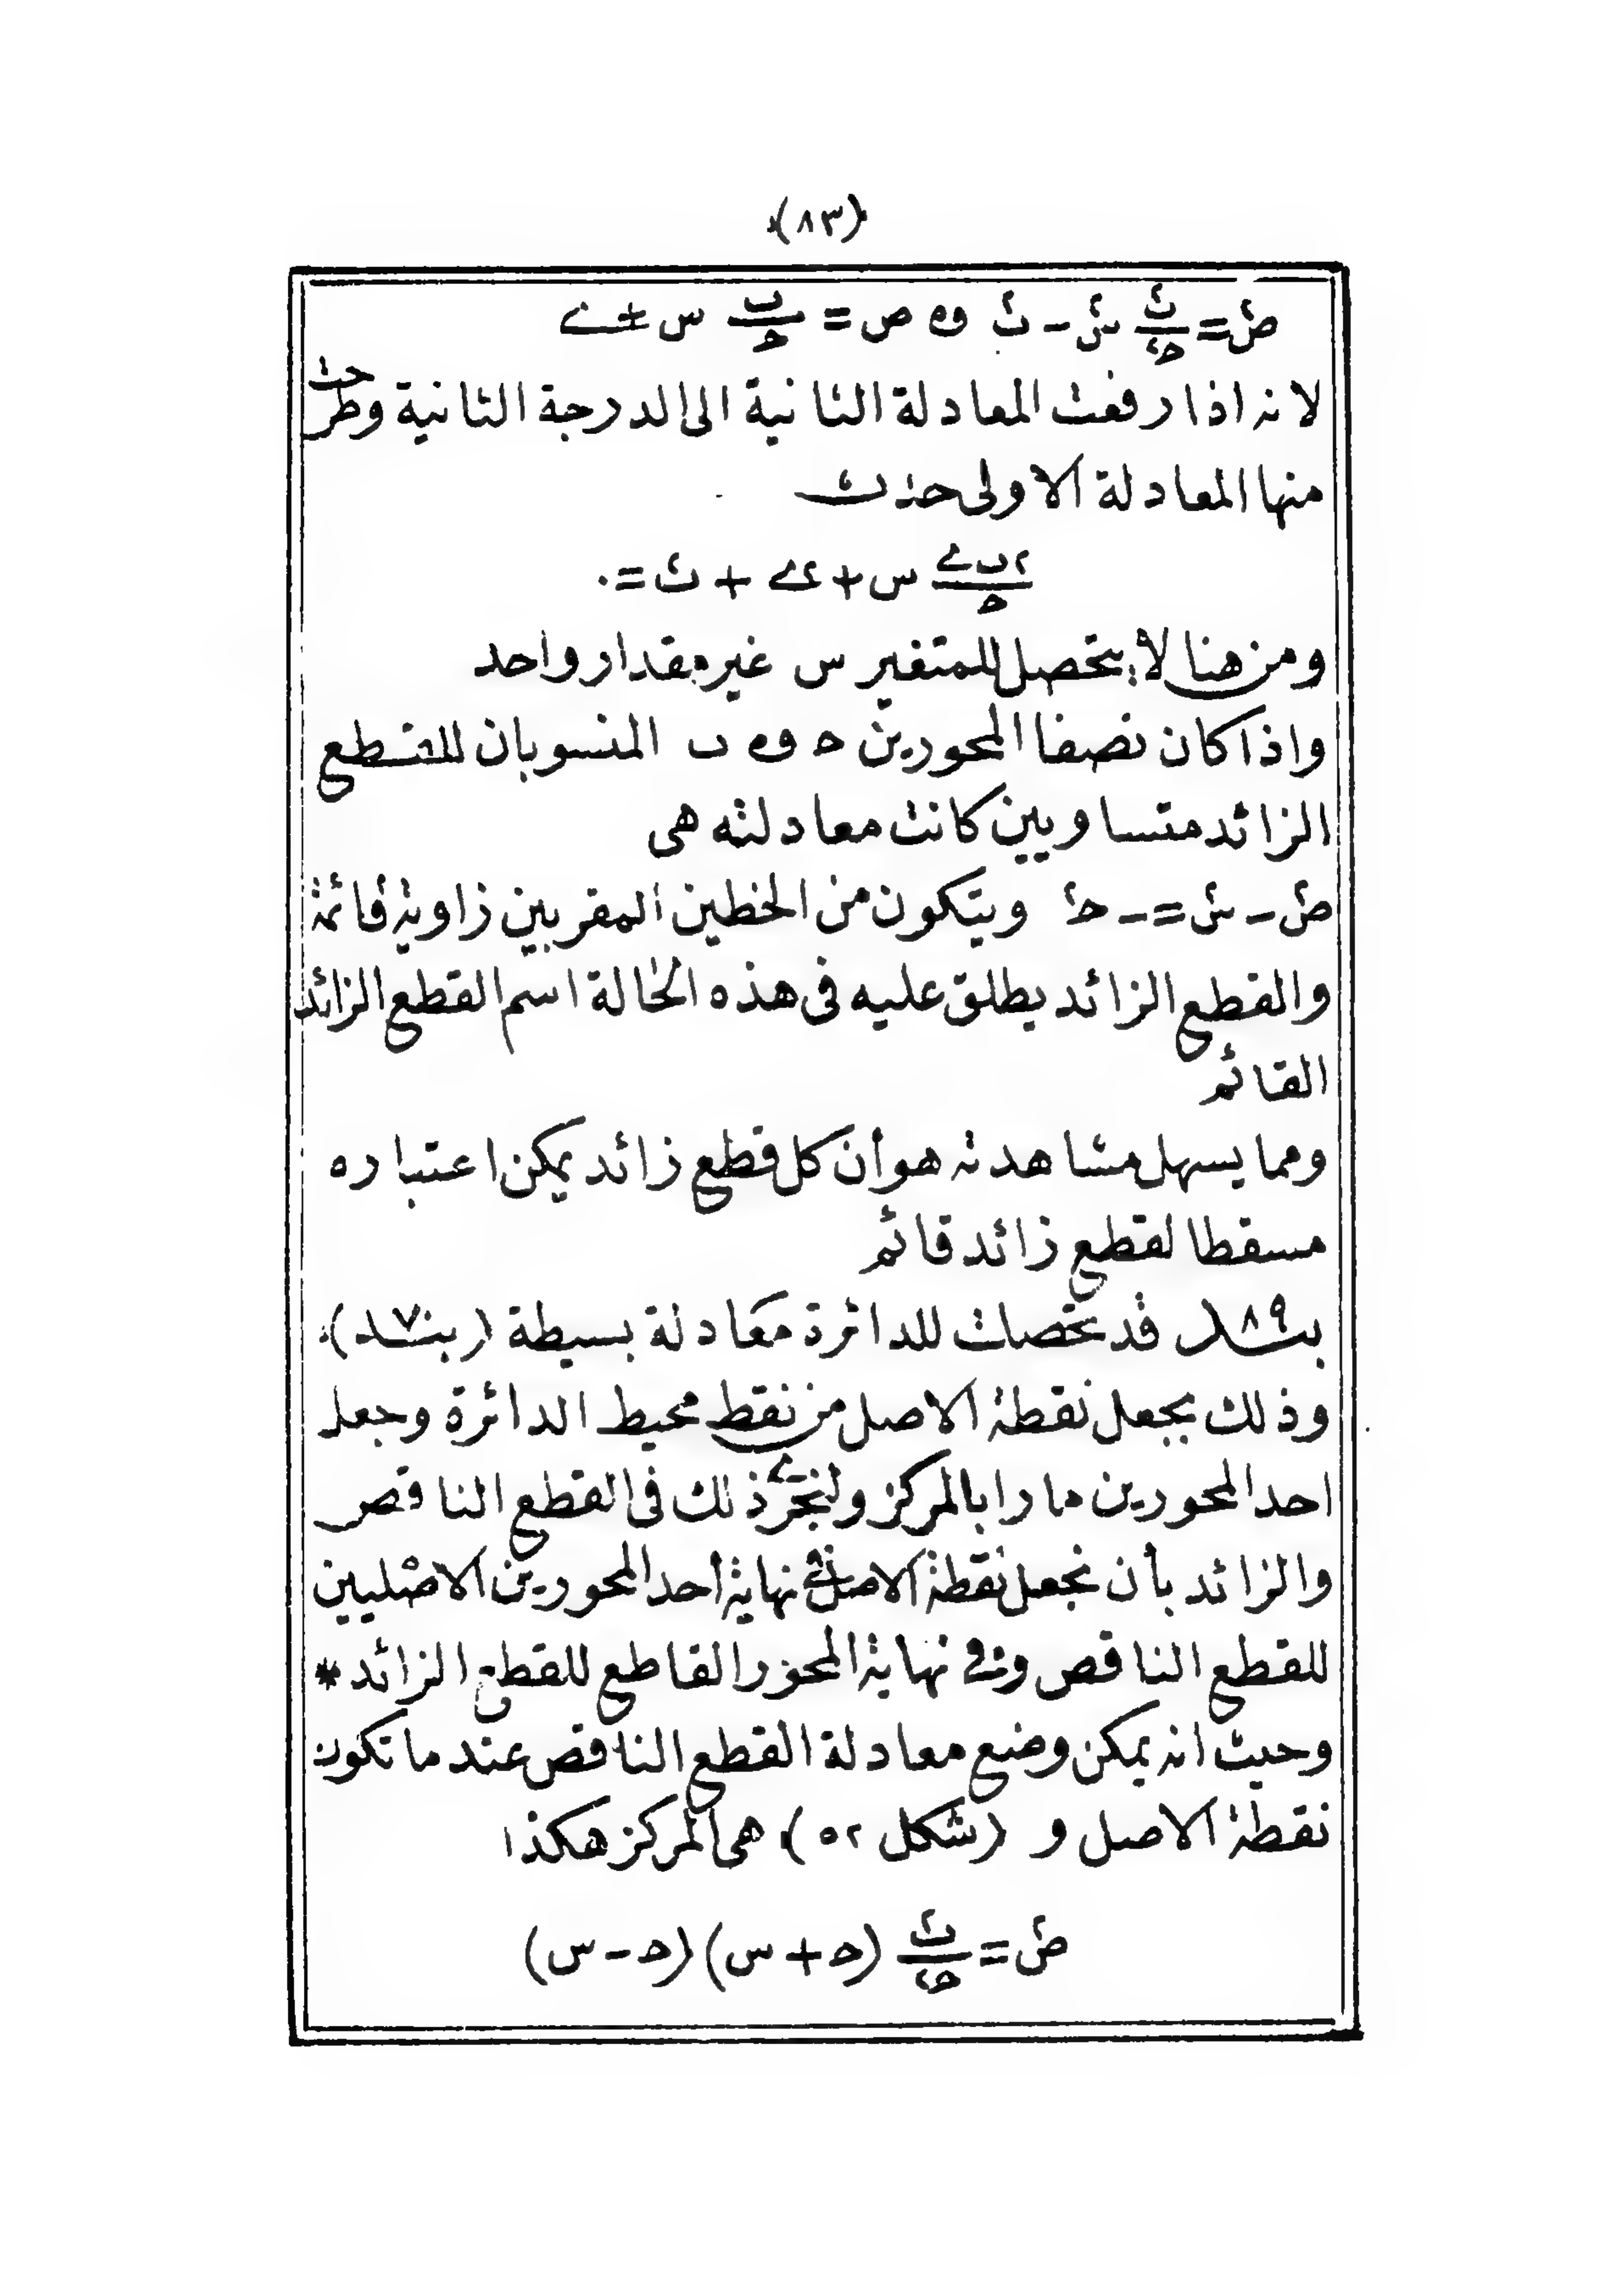 (٨٣)
ص٢ = ب٢/ح٢ س٢ - ب٢ و ص = ب/ح س ± ى
لانه اذا رفعت المعادلة الثانية الى الدرجة الثانية وطرحت
منها المعادلة الاولى حدث
٢ب ى/ح س + ى٢ + ب٢ = ٠
ومن هنا لا يتحصل للمتغير س غير مقدار واحد
واذا كان نصفا المحورين ح و ب المنسوبان للقطع
الزائد متساويين كانت معادلته هى
ص٢ - س٢ = - ح٢ ويتكون من الخطين المقربين زاوية قائمة
والقطع الزائد يطلق عليه فى هذه الحالة اسم القطع الزائد
القائم
ومما يسهل مشاهدته هو أن كل قطع زائد يمكن اعتباره
مسقطا لقطع زائد قائم
بند ٨٩ قد تحصلت للدائرة معادلة بسيطة (بند ٧)
وذلك بجعل نقطة الاصل من نقط محيط الدائرة وجعل
احد المحورين مارا بالمركز ولنجرى ذلك فى القطع الناقص
والزائد بأن نجعل نقطة الاصل فى نهاية أحد المحورين الاصليين
للقطع الناقص وفى نهاية المحور القاطع للقطع الزائد *
وحيث انه يمكن وضع معادلة القطع الناقص عند ما تكون
نقطة الاصل و (شكل ٥٢) هى المركز هكذا
ص٢ = ب٢/ح٢ (ح + س)(ح - س)